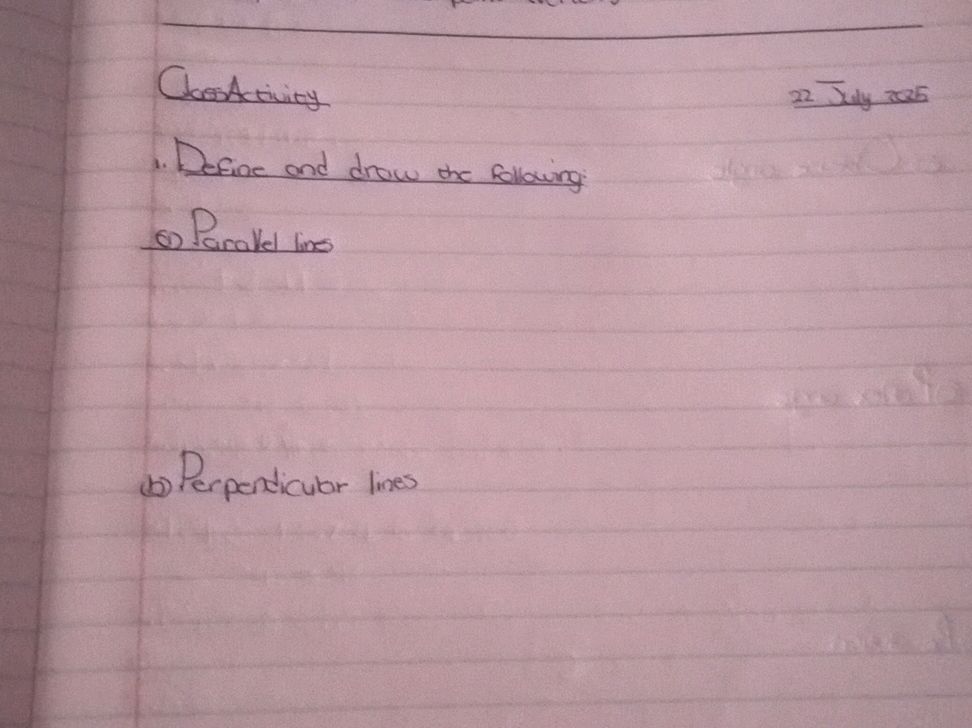 Class Activity 22 July 2025
1. Define and draw the following:
(a) Parallel lines
(b) Perpendicular lines